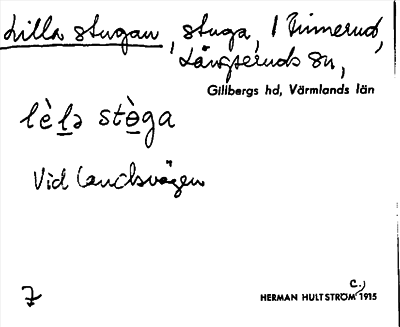 Lilla stugan, stuga, 1 Finnerud,
Långseruds sn,
Gillbergs hd, Värmlands län
lè̀lə stè̀ga
Vid landsvägen
7
HERMAN HULTSTRÖM c. 1915